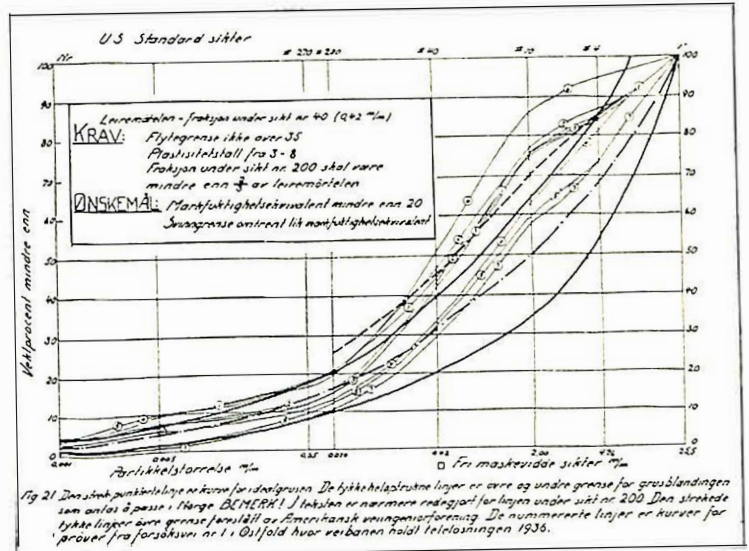 US Standard sikter
Nr # 270 # 200 # 40 # 10 # 4 1"
100 100
90 90
80 80
70 70
60 60
50 50
40 40
30 30
20 20
10 10
0 0
Vektprocent mindre enn
Leiremørtelen - fraksjon under sikt nr 40 (0,42 m/m)
KRAV: Flytegrense ikke over 35
Plastisitetstall fra 3-8
Fraksjon under sikt nr. 200 skal være
mindre enn ⅔ av leiremörtelen
ØNSKEMÅL: Markfuktighetsekvivalent mindre enn 20
Svinngrense omtrent lik markfuktighetsekvivalent
0,001 0,005 0,05 0,42 2,00 4,76
Partikkelstørrelse m/m Fri maskevidde sikter m/m
Fig 21 Den strek punkterte linje er kurve for idealgrusen De tykke heloptrukne linjer er øvre og undre grense for grusblandingen
som antas å passe i Norge BEMERK! I teksten er nærmere redegjort for linjen under sikt nr. 200 Den strekede
tykke linjer övre grense foreslått av Amerikansk veiingeniorforening. De nummererte linjer er kurver for
pröver fra forsöksvei nr 1 i Östfold hvor veibanen holdt telelösningen 1936.